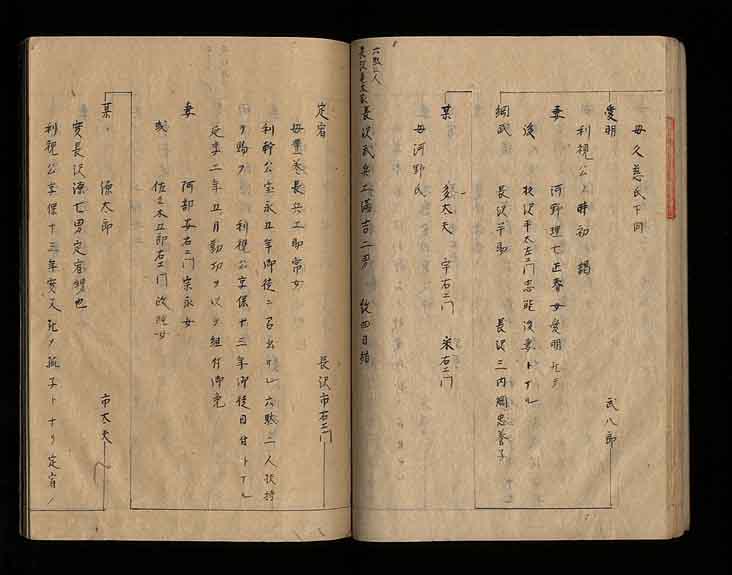 母久慈氏下同
愛明 武八郎
利視公ノ時初謁
妻 河野理七正春女愛明死シ
後 枚沢平太左エ門忠 後妻トナル
綱武 長沢平助 長沢三内綱忠養子
某 多太夫 宇右エ門 采右エ門
母河野氏
六駄二人
長沢武兵エ満吉二男
定省 長沢市右エ門
母豊巻長兵エ助常女
利幹公宝永五年御徒ニ召出サレ六駄二人扶持
ヲ賜フ 利視公享保十三年御徒目付トナル
延享二年五月勤功ヲ以テ組付御免
妻 阿部安右エ門宗永女
或 佐々木五郎右エ門政 女
某 源太郎 市太夫
実長沢源七男定省甥也
利視公享保十三年実父死シ孤子トナリ定省ノ